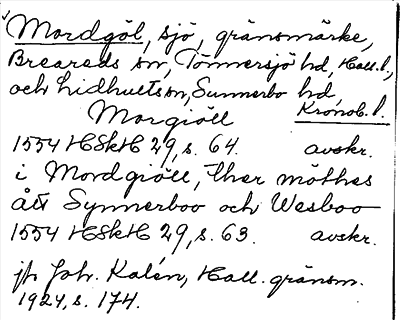 Mordgöl, sjö, gränsmärke,
Breareds sn, Tönnersjö hd, Hall. l.,
och Lidhults sn, Sunnerbo hd,
Kronob. l.
Morgiöll
1554 HSkH 29, s. 64. avskr.
i Mordgiöll, ther möthes
ått Synnerboo och Wesboo
1554 HSkH 29, s. 63. avskr.
jfr Joh. Kalén, Hall. gränsm.
1924, s. 174.